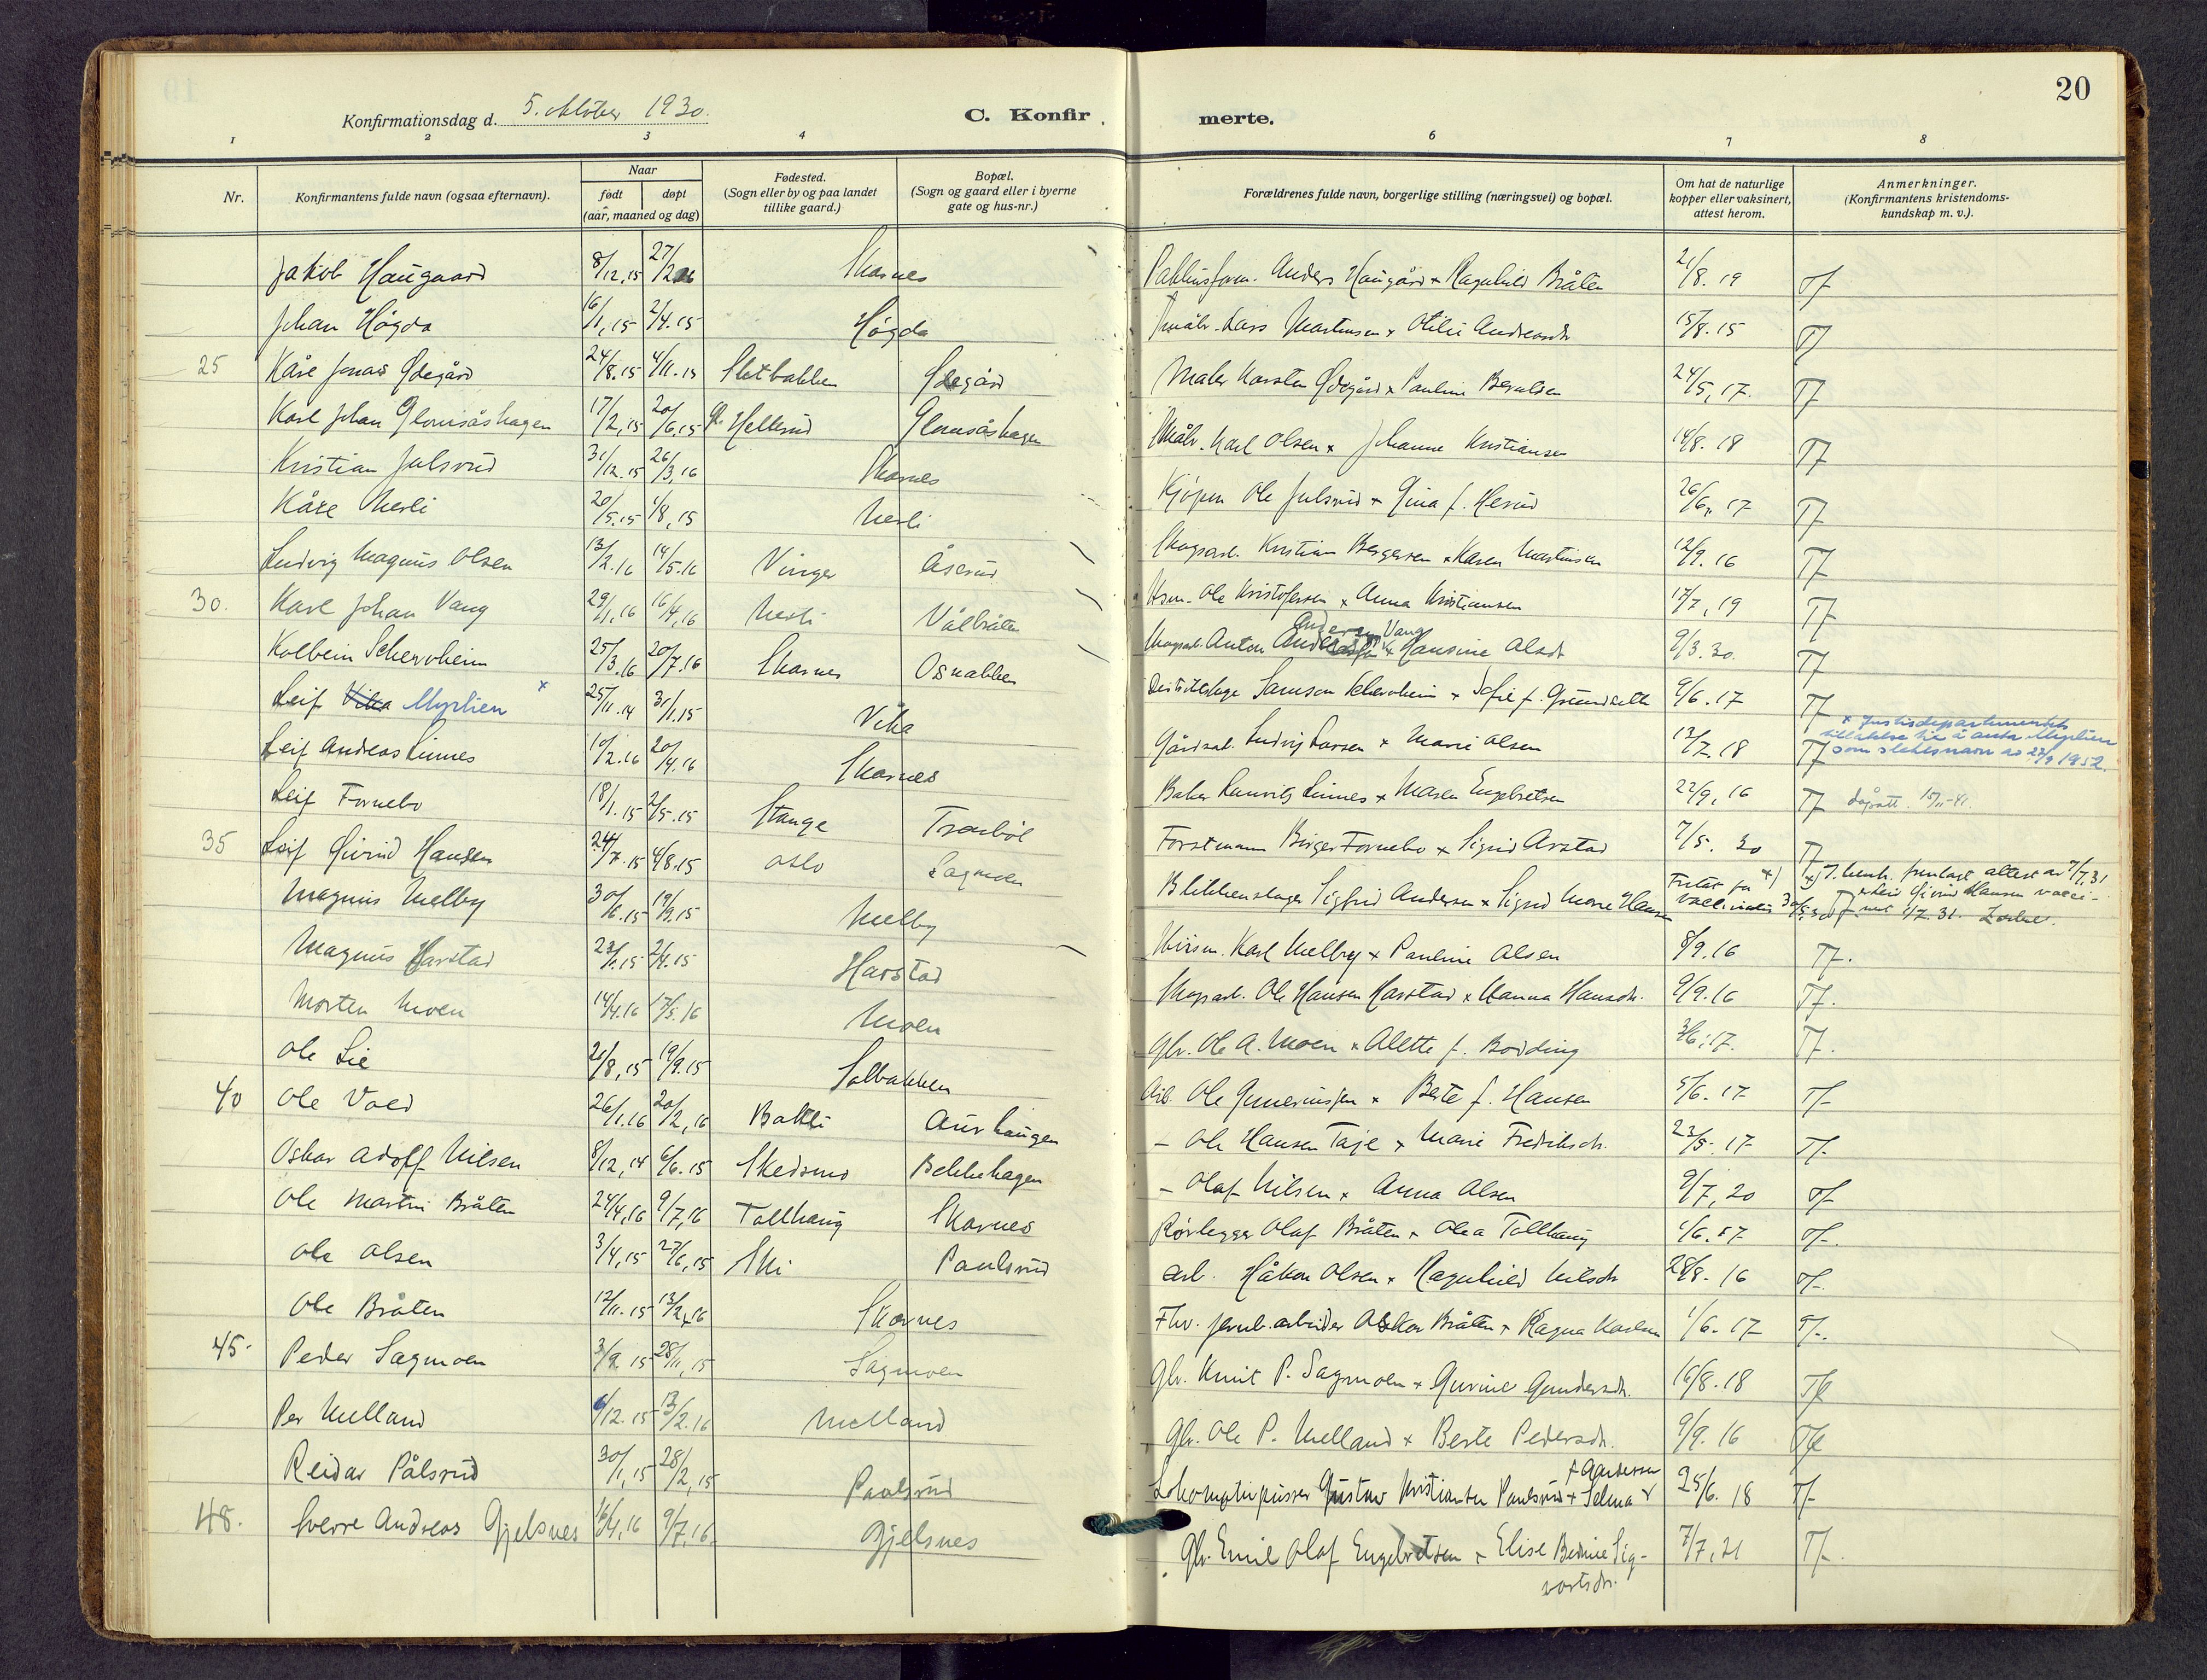 20
Konfirmationsdag d. 5. oktober 1930.
C. Konfir
merte.
1 2 3 4 6 7 8
Nr.
Konfirmantens fulde navn (ogsaa efternavn).
Naar
født døpt
(aar, maaned og dag)
Fødested.
(Sogn eller by og paa landet
tillike gaard.)
Bopæl.
(Sogn og gaard eller i byerne
gate og hus-nr.)
Forældrenes fulde navn, borgerlige stilling (næringsvei) og bopæl.
Om hat de naturlige
kopper eller vaksinert,
attest herom.
Anmerkninger.
(Konfirmantens kristendoms-
kundskap m. v.).
Jakob Haugaard 8/12.15 Skarnes Anders Haugård x Ragnhild Bråten 21/8.19
Johan Høgda 16/1,15 2/4.15 Høgda Lars Martinsen x Otilie 15/8.15
25 Kåre Jonas Ødegård 24/8.15 4/11.15 Sletbakken Ødegård Maler Karsten Ødegård x Pauline 24/5,17. Tf
Karl Johan Glomsåshagen 17/2,15 20/6.15 Hellerud Glomsåshagen Karl Olsen x Johanne Kristiansen 14/8.18 Tf
Kristian Julsrud 31/12.15 26/3,16 Skarnes Kjøpm Ole Julsrud x Gina f. Herud 26/6,17 Tf
Kåre Merli 20/5.15 1/8,15 Merli Skogsarb. Kristian Bergersen x Karen Martinsen 12/9.16 Tf
Ludvig Magnus Olsen 13/2.16 14/5.16 Vinger Åserud Hsm. Ole Kristofersen x Anna Kristiansen 17/7,19 Tf
30. Karl Johan Vang 29/1,16 16/4,16 Merli Vålbråten Skogsarb. Anton Andersen Vang x Hansine Olsdt 9/3.30. Tf
Kolbein Schervheim 25/3.16 20/7.16 Skarnes Osbakken Distriktslege Samson Schervheim x Sofie f. Grundseth 9/6.17 Tf
Leif Vika Myrlien x 25/11.14 31/1.15 Vika Gårdsarb. Ludvig Larsen x Marie Olsen 13/7.18 Tf x Justisdepartementets
tillatelse til å anta Myrlien
som slektsnavn av 22/9 1952.
Leif Andreas Linnes 10/2.16 20/4.16 Skarnes Baker Lauritz Linnes x Maren Engebretsen 22/9,16 Tf dåpsatt. 15/11-41.
Leif Fornebo 18/1.15 2/5.15 Stange Trosbøl Forstmann Birger Fornebo x Sigrid Arstad 7/5.30 Tf
35 Leif Øivind Hansen 24/7.15 4/8.15 Oslo Sagmoen Blikkenslager Sigfrid Andersen x Sigrid Marie Hansen Fritat for x)
Magnus Melby 30/6.15 19/9.15 Melby Karl Melby x Pauline Olsen 8/9.16 Tf.
Magnus Harstad 23/1.15 2/4.15 Harstad Skogsarb. Ole Hansen Harstad x Hanna Hansdt. 9/9.16 Tf.
Morten Moen 14/4.16 17/5.16 Moen Gbr. Ole A. Moen x Alette f. Bodding 3/6.17. Tf.
Ole Lie 20/8,15 19/9.15 Solbakken Arb. Ole Guneriussen x Berte f. Hansen 5/6.17 Tf-
40 Ole Vold 26/1.16 20/2,16 Bakli Aurhaugen - Ole Hansen Taje x Marie Fredriksdt. 23/5.17 Tf-
Oskar Adolf Nilsen 8/12,14 6/6.15 Skedsmo Bekkehagen - Olaf Nilsen x Anna Olsen 9/7,20
Ole Martin Bråten 24/4,16 9/7,16 Tollhaug Skarnes Rørlegger Olaf Bråten x Olea Tollhaug 1/6.17
Ole Olsen 3/4,15 27/6,15 Ski Paulsrud Arb. Håkon Olsen x Ragnhild Nilsdt 28/8.16
Ole Bråten 17/11.15 13/2,16 Skarnes Fhv. jernb.arbeider Oskar Bråten x Ragna Karlsen 1/6.17
45. Peder Sagmoen 3/9.15 28/11,15 Sagmoen Gbr. Knut P. Sagmoen x Gurine Gundersdt. 16/8.18
Per Melland 6/12.15 13/2.16 Melland Gbr. Ole P. Melland x Berte Pedersdt. 9/9.16
Reidar Pålsrud 30/1,15 28/2,15 Paulsrud Lokomotivpusser Gustav Kristiansen Paulsrud x Selma f Andersen 25/6.18 Tf-
48. Sverre Andreas Gjelsnes 16/4,16 9/7,16. Gjelsnes Gbr. Emil Olaf Engebretsen x Elise Bernie Sig-
vartsdt. 7/7,21 Tf-